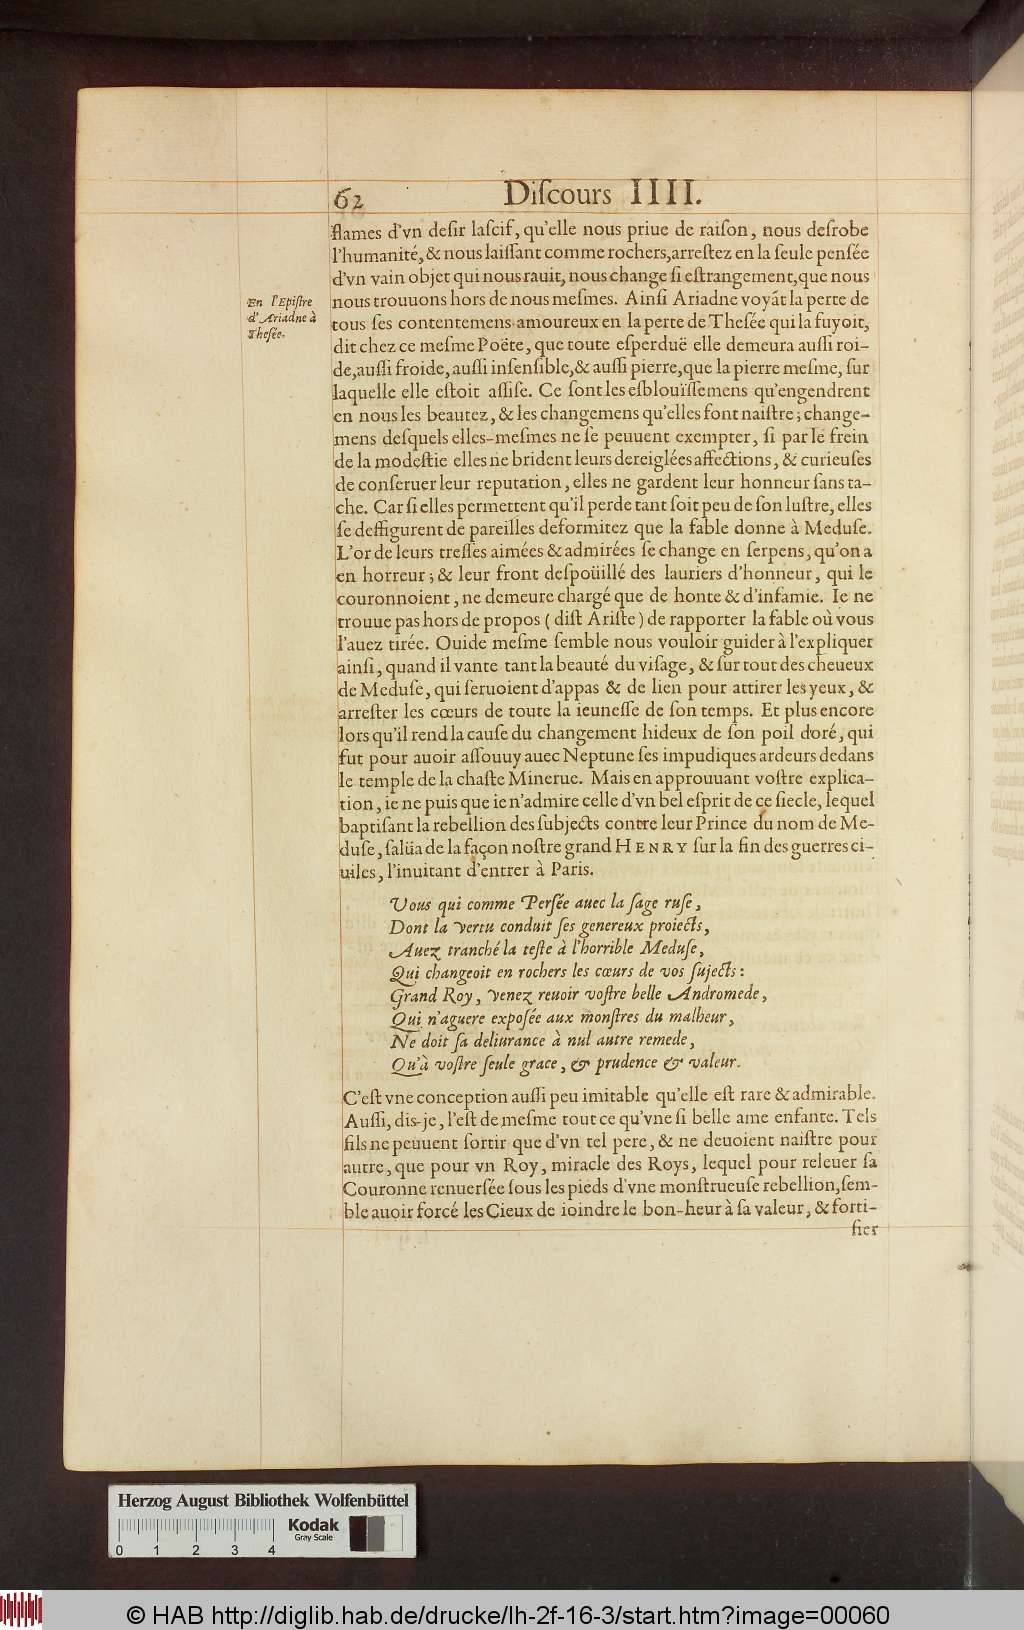 62
Diſcours IIII.
flames d'vn deſir laſcif, qu'elle nous priue de raiſon, nous deſrobe
l'humanité, & nous laiſſant comme rochers, arreſtez en la ſeule penſée
d'vn vain objet qui nous rauit, nous change ſi eſtrangement, que nous
nous trouuons hors de nous meſmes. Ainſi Ariadne voyãt la perte de
tous ſes contentemens amoureux en la perte de Theſée qui la fuyoit,
dit chez ce meſme Poëte, que toute eſperduë elle demeura auſſi roi-
de, auſſi froide, auſſi inſenſible, & auſſi pierre, que la pierre meſme, ſur
laquelle elle eſtoit aſſiſe. Ce ſont les eſblouïſſemens qu'engendrent
en nous les beautez, & les changemens qu'elles font naiſtre; change-
mens deſquels elles-meſmes ne ſe peuuent exempter, ſi par le frein
de la modeſtie elles ne brident leurs dereiglées affections, & curieuſes
de conſeruer leur reputation, elles ne gardent leur honneur ſans ta-
che. Car ſi elles permettent qu'il perde tant ſoit peu de ſon luſtre, elles
ſe deffigurent de pareilles deformitez que la fable donne à Meduſe.
L'or de leurs treſſes aimées & admirées ſe change en ſerpens, qu'on a
en horreur; & leur front deſpoüillé des lauriers d'honneur, qui le
couronnoient, ne demeure chargé que de honte & d'infamie. Ie ne
trouue pas hors de propos ( diſt Ariſte ) de rapporter la fable où vous
l'auez tirée. Ouide meſme ſemble nous vouloir guider à l'expliquer
ainſi, quand il vante tant la beauté du viſage, & ſur tout des cheueux
de Meduſe, qui ſeruoient d'appas & de lien pour attirer les yeux, &
arreſter les cœurs de toute la ieuneſſe de ſon temps. Et plus encore
lors qu'il rend la cauſe du changement hideux de ſon poil doré, qui
fut pour auoir aſſouuy auec Neptune ſes impudiques ardeurs dedans
le temple de la chaſte Minerue. Mais en approuuant voſtre explica-
tion, ie ne puis que ie n'admire celle d'vn bel eſprit de ce ſiecle, lequel
baptiſant la rebellion des ſubjects contre leur Prince du nom de Me-
duſe, ſalüa de la façon noſtre grand HENRY ſur la fin des guerres ci-
uiles, l'inuitant d'entrer à Paris.
Vous qui comme Perſée auec la ſage ruſe,
Dont la vertu conduit ſes genereux proiects,
Auez tranché la teſte à l'horrible Meduſe,
Qui changeoit en rochers les cœurs de vos ſujects:
Grand Roy, venez reuoir voſtre belle Andromede,
Qui n'aguere expoſée aux monſtres du malheur,
Ne doit ſa deliurance à nul autre remede,
Qu'à voſtre ſeule grace, & prudence & valeur.
C'eſt vne conception auſſi peu imitable qu'elle eſt rare & admirable.
Auſſi, dis-je, l'eſt de meſme tout ce qu'vne ſi belle ame enfante. Tels
fils ne peuuent ſortir que d'vn tel pere, & ne deuoient naiſtre pour
autre, que pour vn Roy, miracle des Roys, lequel pour releuer ſa
Couronne renuerſée ſous les pieds d'vne monſtrueuſe rebellion, ſem-
ble auoir forcé les Cieux de ioindre le bon-heur à ſa valeur, & forti-
fier
En l'Epiſtre
d'Ariadne à
Theſée.
Herzog August Bibliothek Wolfenbüttel
Kodak
Gray Scale
0 1 2 3 4
© HAB http://diglib.hab.de/drucke/lh-2f-16-3/start.htm?image=00060